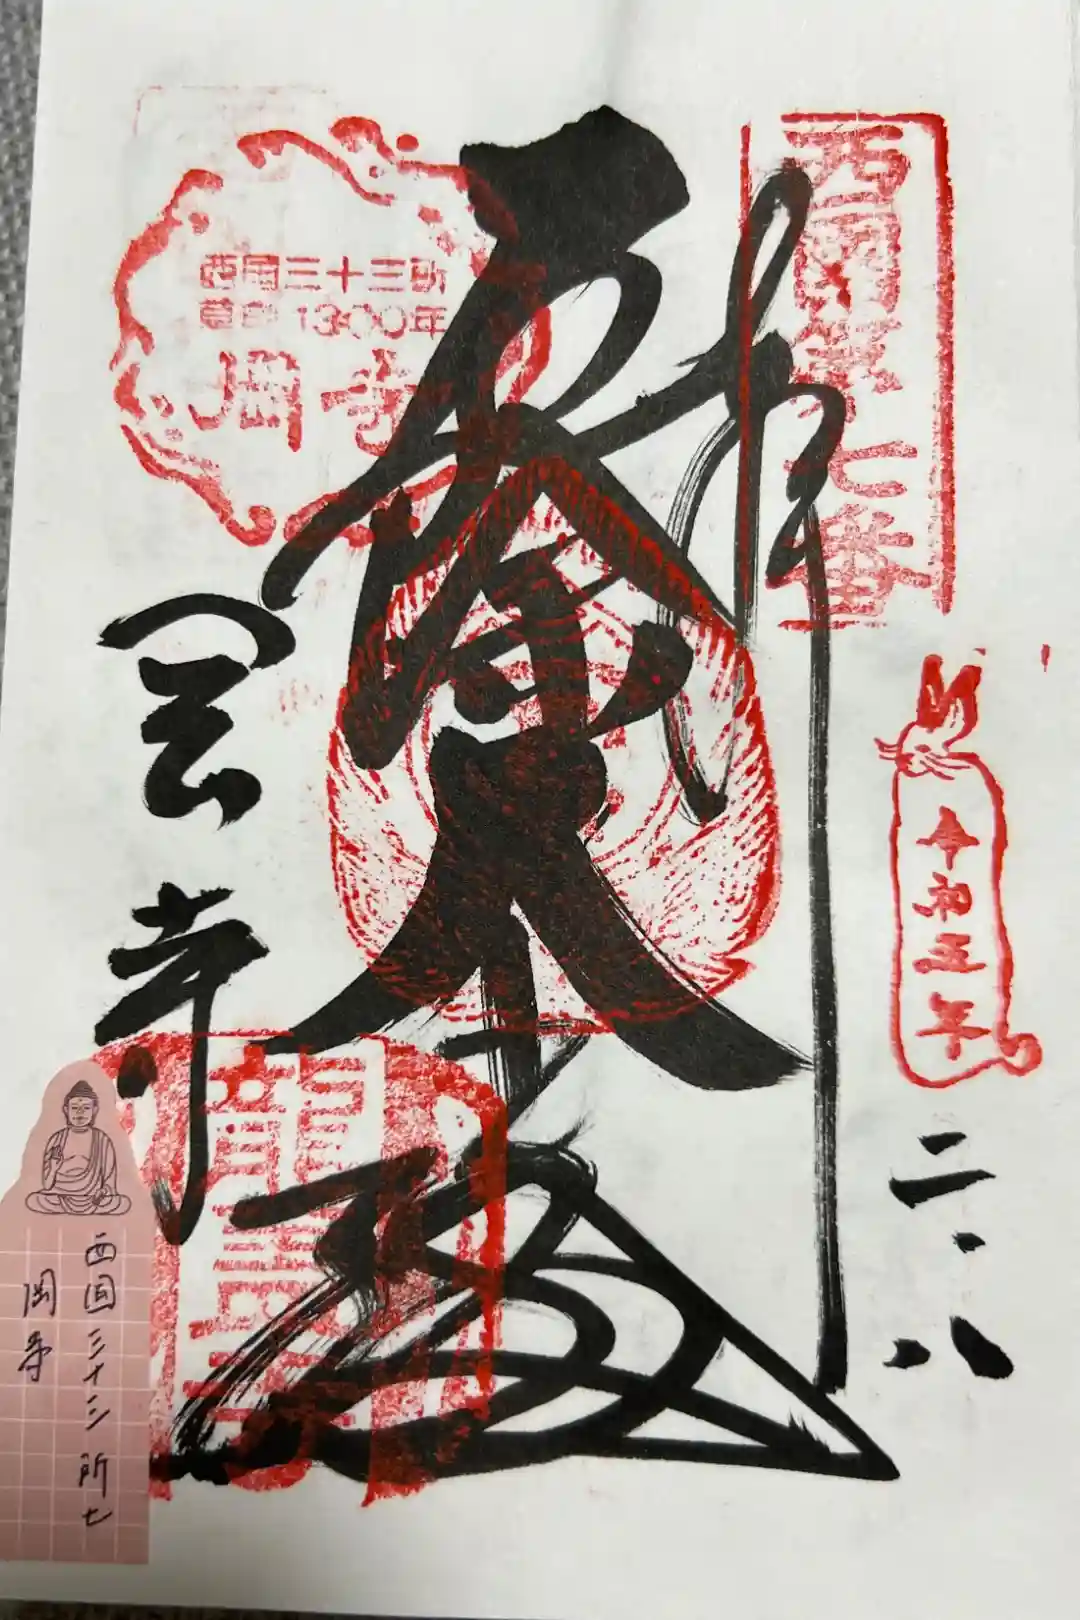 西國第七番
奉拝
令和五年
二・八
岡寺
西国三十三所
草創1300年
岡寺
西国三十三所七
岡寺